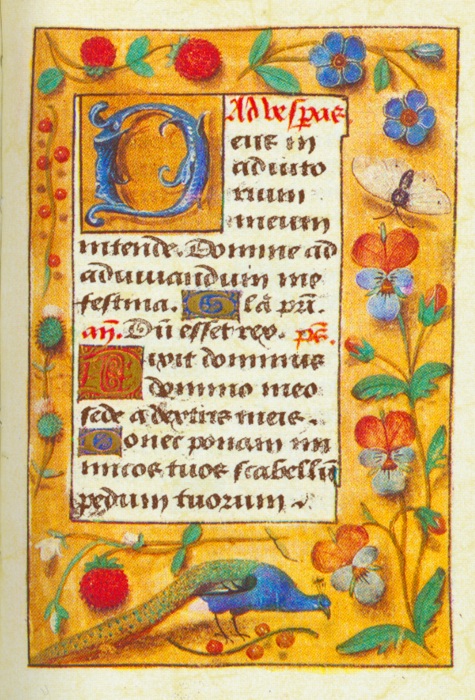 Ad vesperas
Deus in
adiuto
rium
meum
intende. Domine ad
adiuuandum me
festina. Glã pri.
añ. Dũ esset rex. ps.
Dixit dominus
domino meo
sede a dextris meis.
Donec ponam ini
micos tuos scabellũ
pedum tuorum